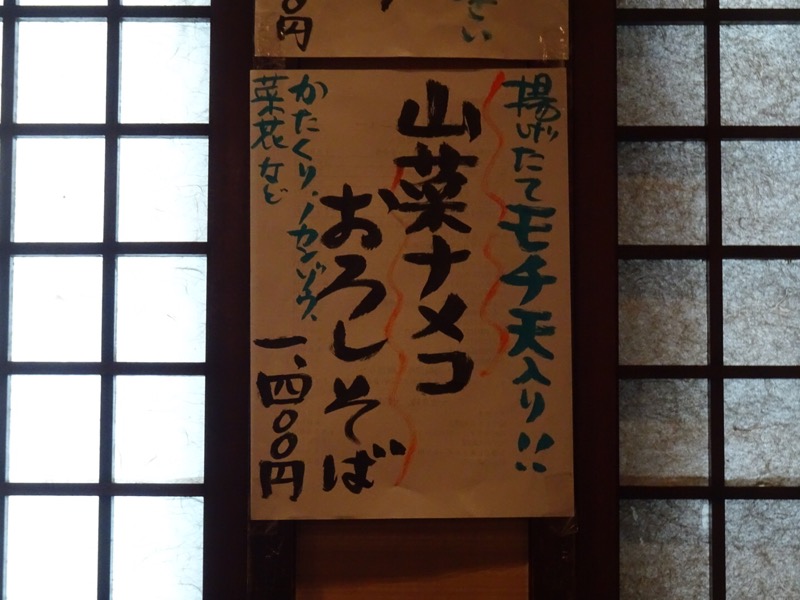 揚げたてモチ天入り!!
山菜ナメコ
おろしそば
かたくり、ノカンゾウ、
菜花など
一、四〇〇円
〇円
さい